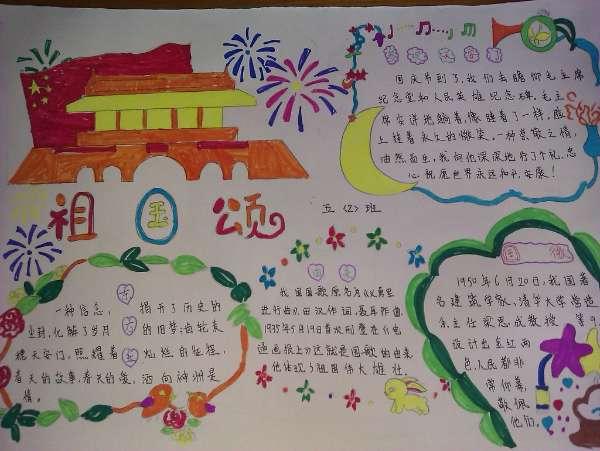 祖国颂
五〈2〉班
国庆节到了,我们去瞻仰毛主席
纪念堂和人民英雄纪念碑。毛主
席安详地躺着,像睡着了一样,脸
上挂着永久的微笑,一种崇敬之情,
油然而生,我向他深深地行了个礼,忠
心祝愿世界永远和平、安康!
一种信念,
揭开了历史的
尘封,化解了岁月
的旧梦
春天的故事,春天的
向神州是
我国国歌原名为《义勇军
进行曲》,由汉作词,聂耳作曲,
1935年5月19日首次刊登在《电
通画报上》,这就是国歌的由来
他体现了祖国伟大雄壮。
国徽
1950年6月20日,我国著
名建筑学家,清华大学营造
系主任梁思成教授 等9
设计出金红两
色,人民都非
常仰慕,
敬佩
他们。